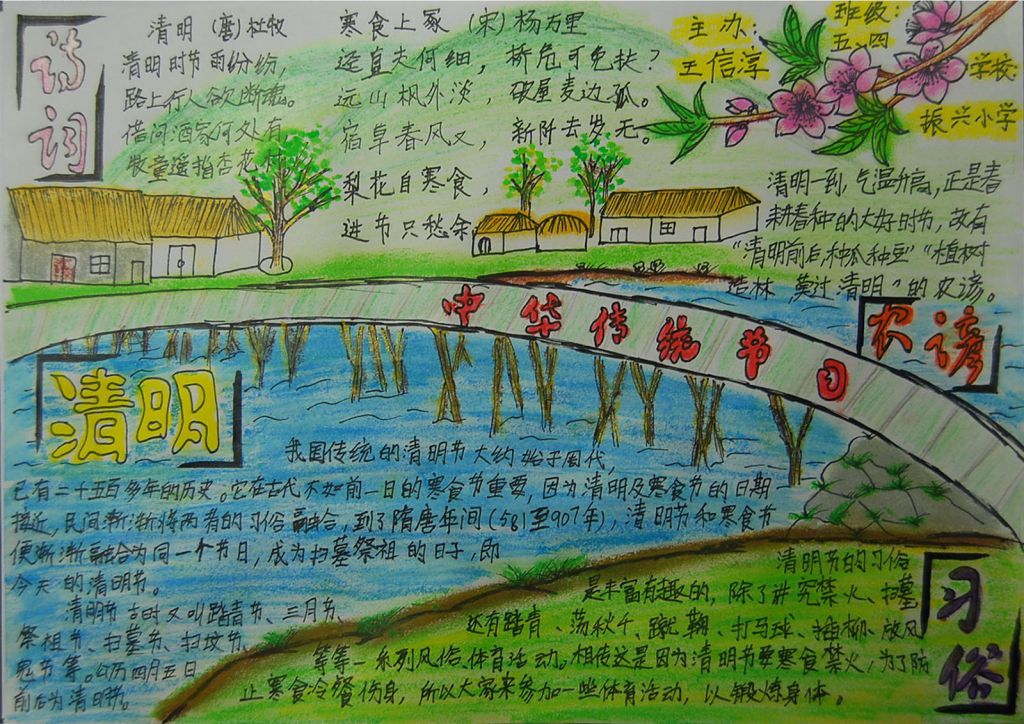 诗词
清明 (唐)杜牧
清明时节雨纷纷，
路上行人欲断魂。
借问酒家何处有
牧童遥指杏花村
寒食上冢 (宋)杨万里
迳直夫何细，桥危可免扶？
远山枫外淡，破屋麦边孤。
宿草春风又，新阡去岁无。
梨花自寒食，
进节只愁余
主办：
王信淳
班级：
五、四
学校：
振兴小学
清明一到，气温升高，正是春
耕春种的大好时节，故有
“清明前后，种瓜种豆”“植树
造林 莫过清明”的农谚。
农谚
中华传统节日
清明
我国传统的清明节大约始于周代，
已有二千五百多年的历史。它在古代不如前一日的寒食节重要，因为清明及寒食节的日期
接近，民间渐渐将两者的习俗融合，到了隋唐年间(581至907年)，清明节和寒食节
便渐渐融合为同一个节日，成为扫墓祭祖的日子，即
今天的清明节。
清明节古时又叫踏青节、三月节、
祭祖节、扫墓节、扫坟节、
鬼节等。公历四月五日
前后为清明节。
习俗
清明节的习俗
是丰富有趣的，除了讲究禁火、扫墓
还有踏青、荡秋千、蹴鞠、打马球、插柳、放风
等等一系列风俗体育活动。相传这是因为清明节要寒食禁火，为了防
止寒食冷餐伤身，所以大家来参加一些体育活动，以锻炼身体。